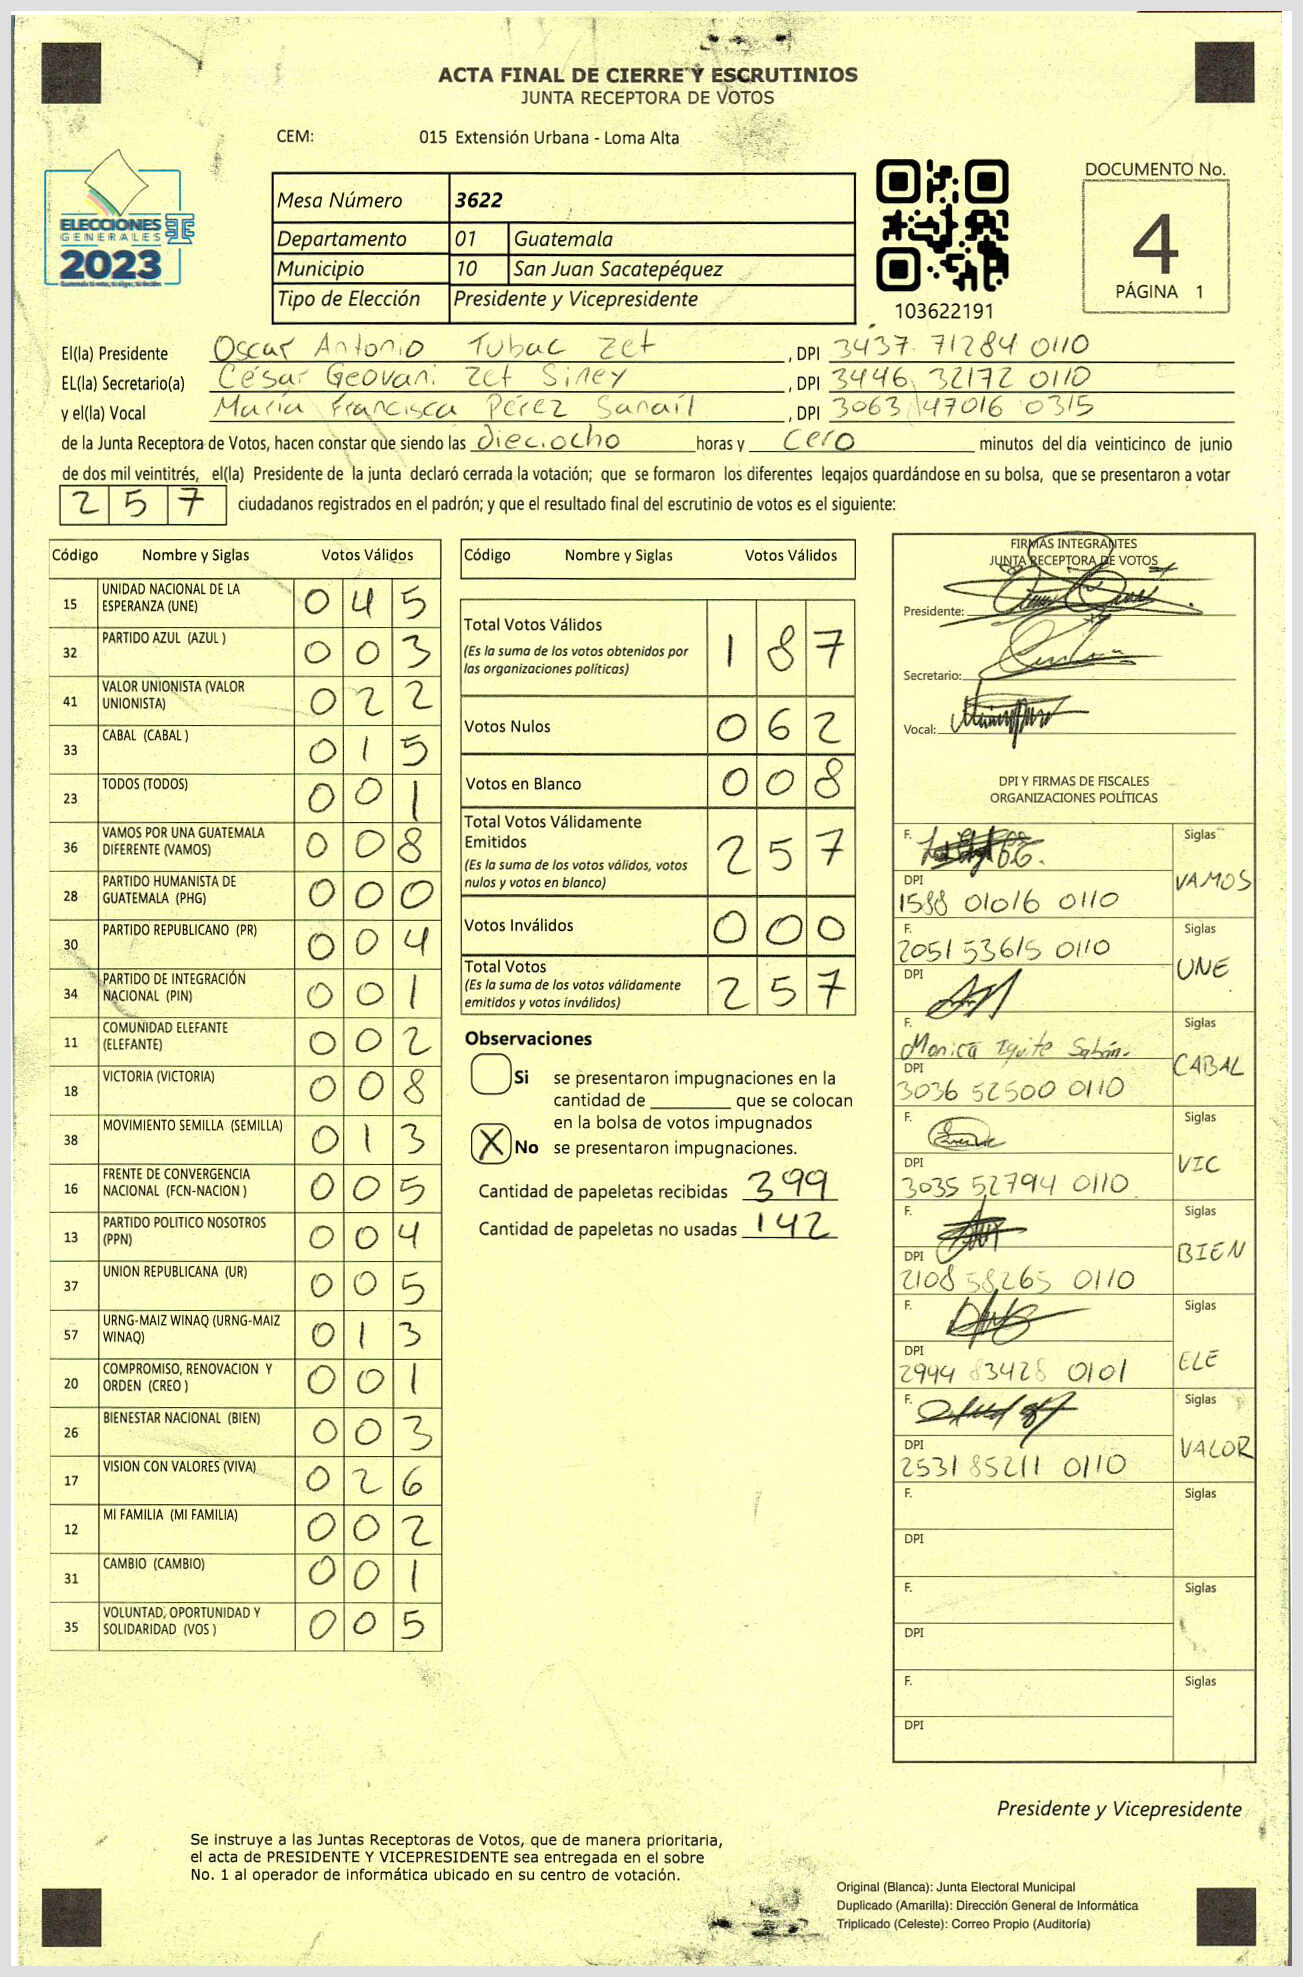 ACTA FINAL DE CIERRE Y ESCRUTINIOS
JUNTA RECEPTORA DE VOTOS
CEM: 015 Extensión Urbana - Loma Alta
ELECCIONES
GENERALES
2023
Mesa Número 3622
Departamento 01 Guatemala
Municipio 10 San Juan Sacatepéquez
Tipo de Elección Presidente y Vicepresidente
103622191
DOCUMENTO No.
4
PÁGINA 1
El(la) Presidente Oscar Antonio Tubac Zet , DPI 3437 71284 0110
EL(la) Secretario(a) César Geovani Zet Siney , DPI 3446 32172 0110
y el(la) Vocal María Francisca Pérez Sanail , DPI 3063 47016 0315
de la Junta Receptora de Votos, hacen constar que siendo las dieciocho horas y cero minutos del día veinticinco de junio
de dos mil veintitrés, el(la) Presidente de la junta declaró cerrada la votación; que se formaron los diferentes legajos guardándose en su bolsa, que se presentaron a votar
257 ciudadanos registrados en el padrón; y que el resultado final del escrutinio de votos es el siguiente:
Código Nombre y Siglas Votos Válidos
15 UNIDAD NACIONAL DE LA
ESPERANZA (UNE) 045
32 PARTIDO AZUL (AZUL ) 003
41 VALOR UNIONISTA (VALOR
UNIONISTA) 022
33 CABAL (CABAL ) 015
23 TODOS (TODOS) 001
36 VAMOS POR UNA GUATEMALA
DIFERENTE (VAMOS) 008
28 PARTIDO HUMANISTA DE
GUATEMALA (PHG) 000
30 PARTIDO REPUBLICANO (PR) 004
34 PARTIDO DE INTEGRACIÓN
NACIONAL (PIN) 001
11 COMUNIDAD ELEFANTE
(ELEFANTE) 002
18 VICTORIA (VICTORIA) 008
38 MOVIMIENTO SEMILLA (SEMILLA) 013
16 FRENTE DE CONVERGENCIA
NACIONAL (FCN-NACION ) 005
13 PARTIDO POLITICO NOSOTROS
(PPN) 004
37 UNION REPUBLICANA (UR) 005
57 URNG-MAIZ WINAQ (URNG-MAIZ
WINAQ) 013
20 COMPROMISO, RENOVACION Y
ORDEN (CREO ) 001
26 BIENESTAR NACIONAL (BIEN) 003
17 VISION CON VALORES (VIVA) 026
12 MI FAMILIA (MI FAMILIA) 002
31 CAMBIO (CAMBIO) 001
35 VOLUNTAD, OPORTUNIDAD Y
SOLIDARIDAD (VOS ) 005
Código Nombre y Siglas Votos Válidos
Total Votos Válidos 187
(Es la suma de los votos obtenidos por
las organizaciones políticas)
Votos Nulos 062
Votos en Blanco 008
Total Votos Válidamente
Emitidos 257
(Es la suma de los votos válidos, votos
nulos y votos en blanco)
Votos Inválidos 000
Total Votos 257
(Es la suma de los votos válidamente
emitidos y votos inválidos)
Observaciones
Si se presentaron impugnaciones en la
cantidad de ________ que se colocan
en la bolsa de votos impugnados
X No se presentaron impugnaciones.
Cantidad de papeletas recibidas 399
Cantidad de papeletas no usadas 142
FIRMAS INTEGRANTES
JUNTA RECEPTORA DE VOTOS
Presidente:
Secretario:
Vocal:
DPI Y FIRMAS DE FISCALES
ORGANIZACIONES POLÍTICAS
F. Siglas
DPI VAMOS
1588 01016 0110
F. Siglas
2051 53615 0110
DPI UNE
F. Siglas
Monica Iquite Sabán.
DPI CABAL
3036 52500 0110
F. Siglas
DPI VIC
3035 52794 0110
F. Siglas
DPI BIEN
2108 58265 0110
F. Siglas
DPI ELE
2944 83428 0101
F. Siglas
DPI VALOR
2531 85211 0110
F. Siglas
DPI
F. Siglas
DPI
F. Siglas
DPI
Presidente y Vicepresidente
Se instruye a las Juntas Receptoras de Votos, que de manera prioritaria,
el acta de PRESIDENTE Y VICEPRESIDENTE sea entregada en el sobre
No. 1 al operador de informática ubicado en su centro de votación.
Original (Blanca): Junta Electoral Municipal
Duplicado (Amarilla): Dirección General de Informática
Triplicado (Celeste): Correo Propio (Auditoría)